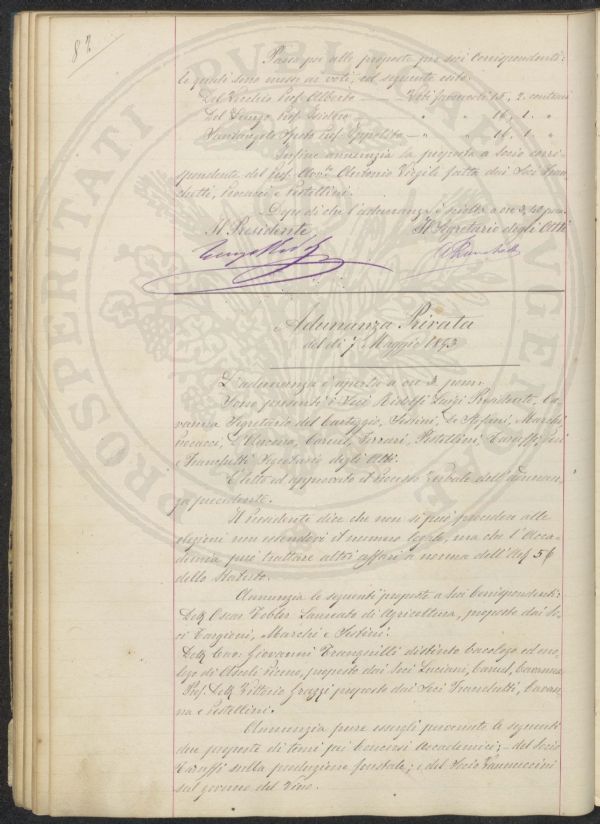 82
Passa poi alle proposte per soci corrispondenti:
le quali sono messe ai voti, col seguente esito.
Del Vecchio Prof. Alberto — Voti favorevoli 15, 2. contrari
Del Lungo Prof. Isidoro — " " 16, 1. "
Santangelo Spoto Prof. Ippolito — " " 16. 1. "
Infine annunzia la proposta a socio corri-
spondente del Prof. Avv. Antonio Virgili fatta dai Soci Fran-
chetti, e Pestellini.
Dopo di che l'adunanza è sciolta a ore 3,40 pom.
Il Presidente Il Segretario degli Atti
Adunanza Privata
del dì 7 Maggio 1893
L'adunanza è aperta a ore 2 pom.
Sono presenti i Soci Ridolfi Luigi Presidente, Ca-
vanna Segretario del Carteggio, Sestini, De Stefani, Marchi,
Caruel, Ferrari, Pestellini, Caruffi,
e Franchetti Segretario degli Atti.
È letto ed approvato il Processo Verbale dell'adunan-
za precedente.
Il Presidente dice che non si può procedere alle
elezioni non essendovi il numero legale, ma che l'Acca-
demia può trattare altri affari a norma dell'Art 56
dello Statuto.
Annunzia le seguenti proposte a Soci Corrispondenti:
Dott. Oscar Tobler Laureato di Agricoltura, proposto dai So-
ci Targioni, Marchi e Sestini.
Dott. Cav. Giovanni Tranquilli distinto bacologo ed eno-
logo di Ascoli Piceno, proposto dai Soci Luciani, Caruel, Cavanna
Prof. Dott. Vittorio Grazzi proposto dai Soci Franchetti, Cavan-
na e Pestellini.
Annunzia pure essergli pervenute le seguenti
due proposte di temi pei Concorsi Accademici; — del Socio
Caruffi sulla produzione forestale; e del Socio Vannuccini
sul governo del Vino.
PROSPERITATI PUBLICAE AUGENDAE